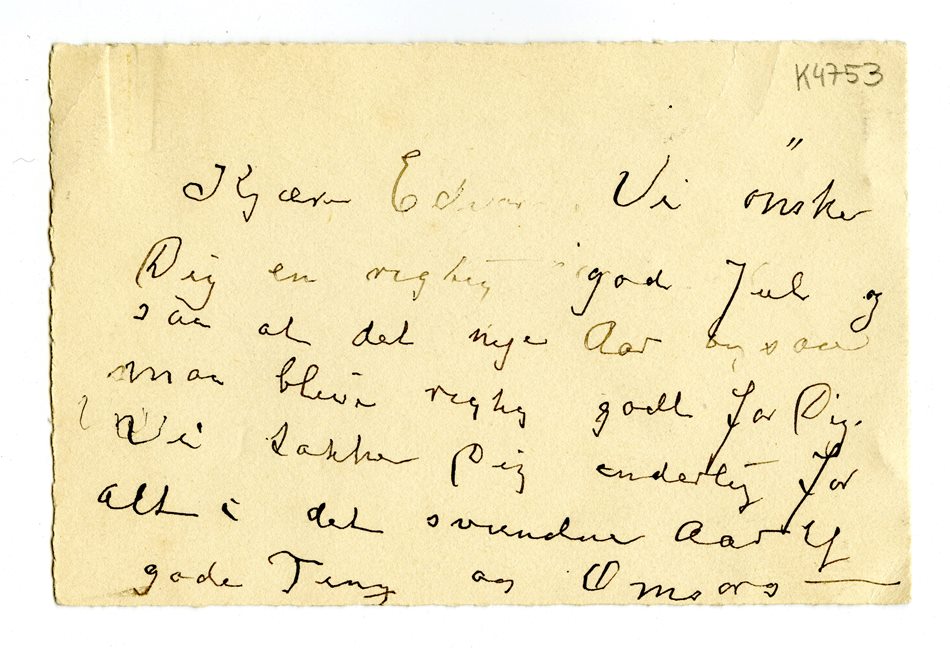 K4753
Kjære Edvard. Vi önsker
Dig en rigtig god Jul og
saa at det nye Aar ogsaa
maa blive rigtig godt for Dig.
Vi takker Dig inderlig for
alt i det svundne Aar af
gode Ting og Omsorg —